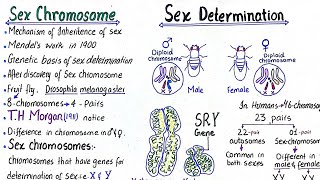 Sex Chromosome
• Mechanism of Inheritance of sex
• Mendel's work in 1900
• Genetic basis of sex determination
• After discovery of Sex chromosome
• Fruit fly, Drosophila melanogaster
8-chromosomes → 4 - Pairs
T.H Morgan (1911) notice
• Difference in chromosome
• Sex chromosomes:-
Chromosomes that have genes for
determination of sex i.e X & Y
Sex Determination
♂
Diploid
Chromosome
Male
Female
♀
Diploid
Chromosome
SRY
Gene
In Humans → 46-chromosomes
23 pairs
22-pair
autosomes
Common in
both sexes
01-
Sex chromosome
Different in
male & female
X Y